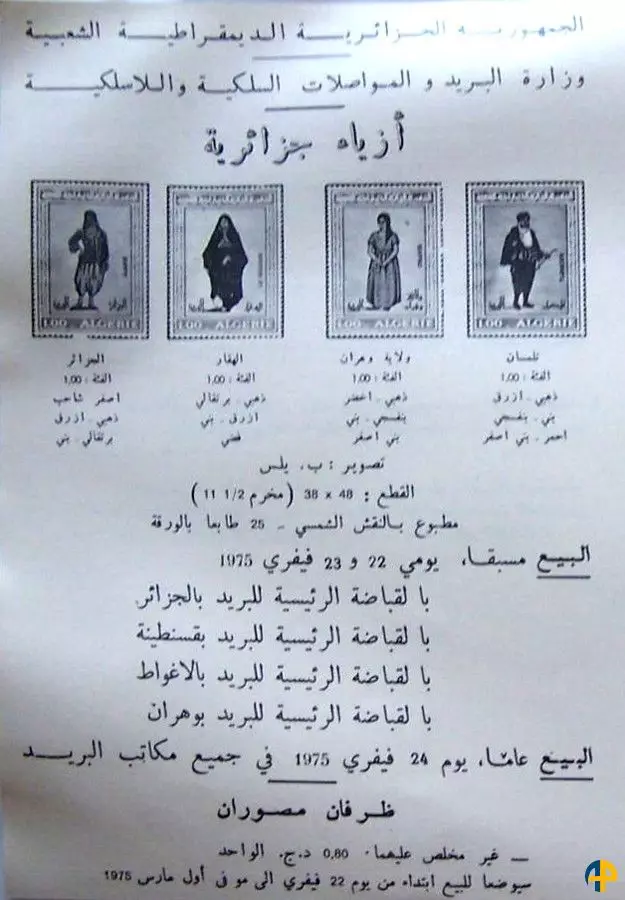 الجمهورية الجزائرية الديمقراطية الشعبية
وزارة البريد و المواصلات السلكية واللاسلكية
أزياء جزائرية
1.00 ALGERIE
1.00 ALGERIE
1.00 ALGERIE
1.00 ALGERIE
تلمسان
الفئة : 1,00
ذهبي - ازرق
بني - بنفسجي
احمر - بني اصفر
ولاية وهران
الفئة : 1,00
ذهبي - اخضر
بنفسجي - بني
بني اصفر
الهقار
الفئة : 1,00
ذهبي - برتقالي
ازرق - بني
فضي
الجزائر
الفئة : 1,00
اصفر شاحب
ذهبي - ازرق
برتقالي - بني
تصوير : ب. يلس
القطع : 48 x 38 (مخرم 1/2 11)
مطبوع بالنقش الشمسي - 25 طابعا بالورقة
البيع مسبقا، يومي 22 و 23 فيفري 1975
با لقباضة الرئيسية للبريد بالجزائر
با لقباضة الرئيسية للبريد بقسنطينة
با لقباضة الرئيسية للبريد بالاغواط
با لقباضة الرئيسية للبريد بوهران
البيع عاما، يوم 24 فيفري 1975 في جميع مكاتب البريد
ظرفان مصوران
— غير مخلص عليهما . 0,80 د.ج. الواحد
سيوضعا للبيع ابتداء من يوم 22 فيفري الى مو فى أول مارس 1975